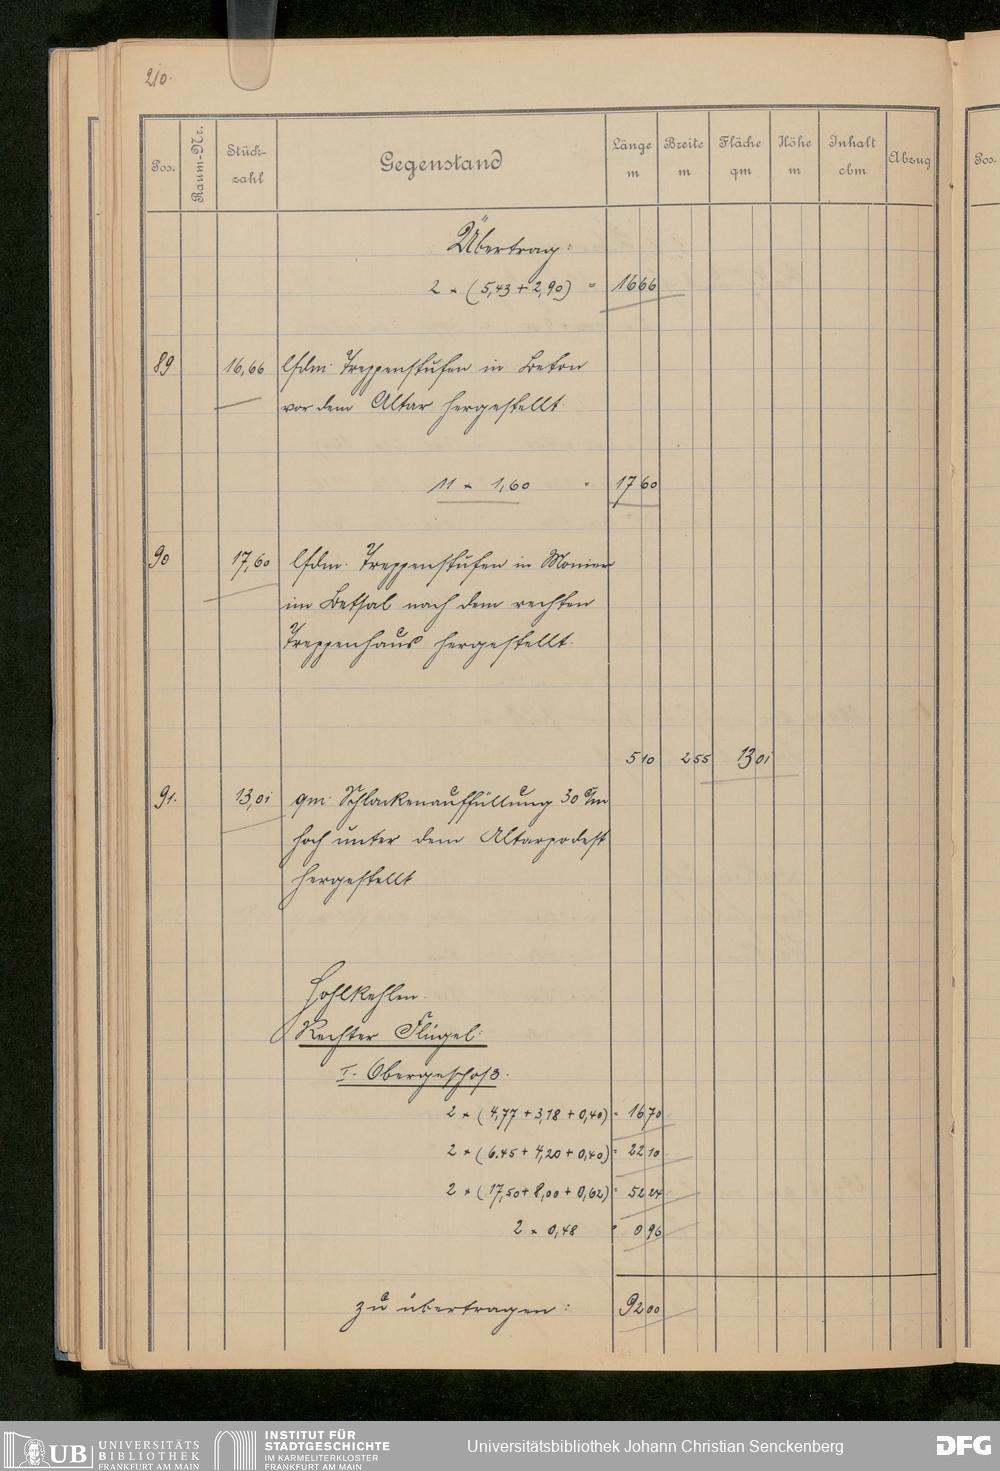 210.
Pos.
Raum-Nr.
Stück-
zahl
Gegenstand
Länge
m
Breite
m
Fläche
qm
Höhe
m
Inhalt
cbm
Abzug
Pos.
Übertrag:
2 × (5,43 + 2,90) = 16 66
89 16,66 lfdm. Treppenstufen in Beton
vor dem Altar hergestellt.
11 × 1,60 = 17 60
90 17,60 lfdm. Treppenstufen in Monier
im Betsal nach dem rechten
Treppenhaus hergestellt.
5 10 2 55 13 01
91. 13,01 qm. Schlackenauffüllung 30 c/m
hoch unter dem Altarpodest
hergestellt
Hohlkehlen.
Rechter Flügel:
I. Obergeschoß.
2 × (4,77 + 3,18 + 0,40) = 16 70
2 × (6.45 + 4,20 + 0,40) = 22 10
2 × (17,50 + 8,00 + 0,62) = 52 24
2 × 0,48 = 0 96
zu übertragen: 92 00
UB UNIVERSITÄTS
BIBLIOTHEK
FRANKFURT AM MAIN
INSTITUT FÜR
STADTGESCHICHTE
IM KARMELITERKLOSTER
FRANKFURT AM MAIN
Universitätsbibliothek Johann Christian Senckenberg
DFG